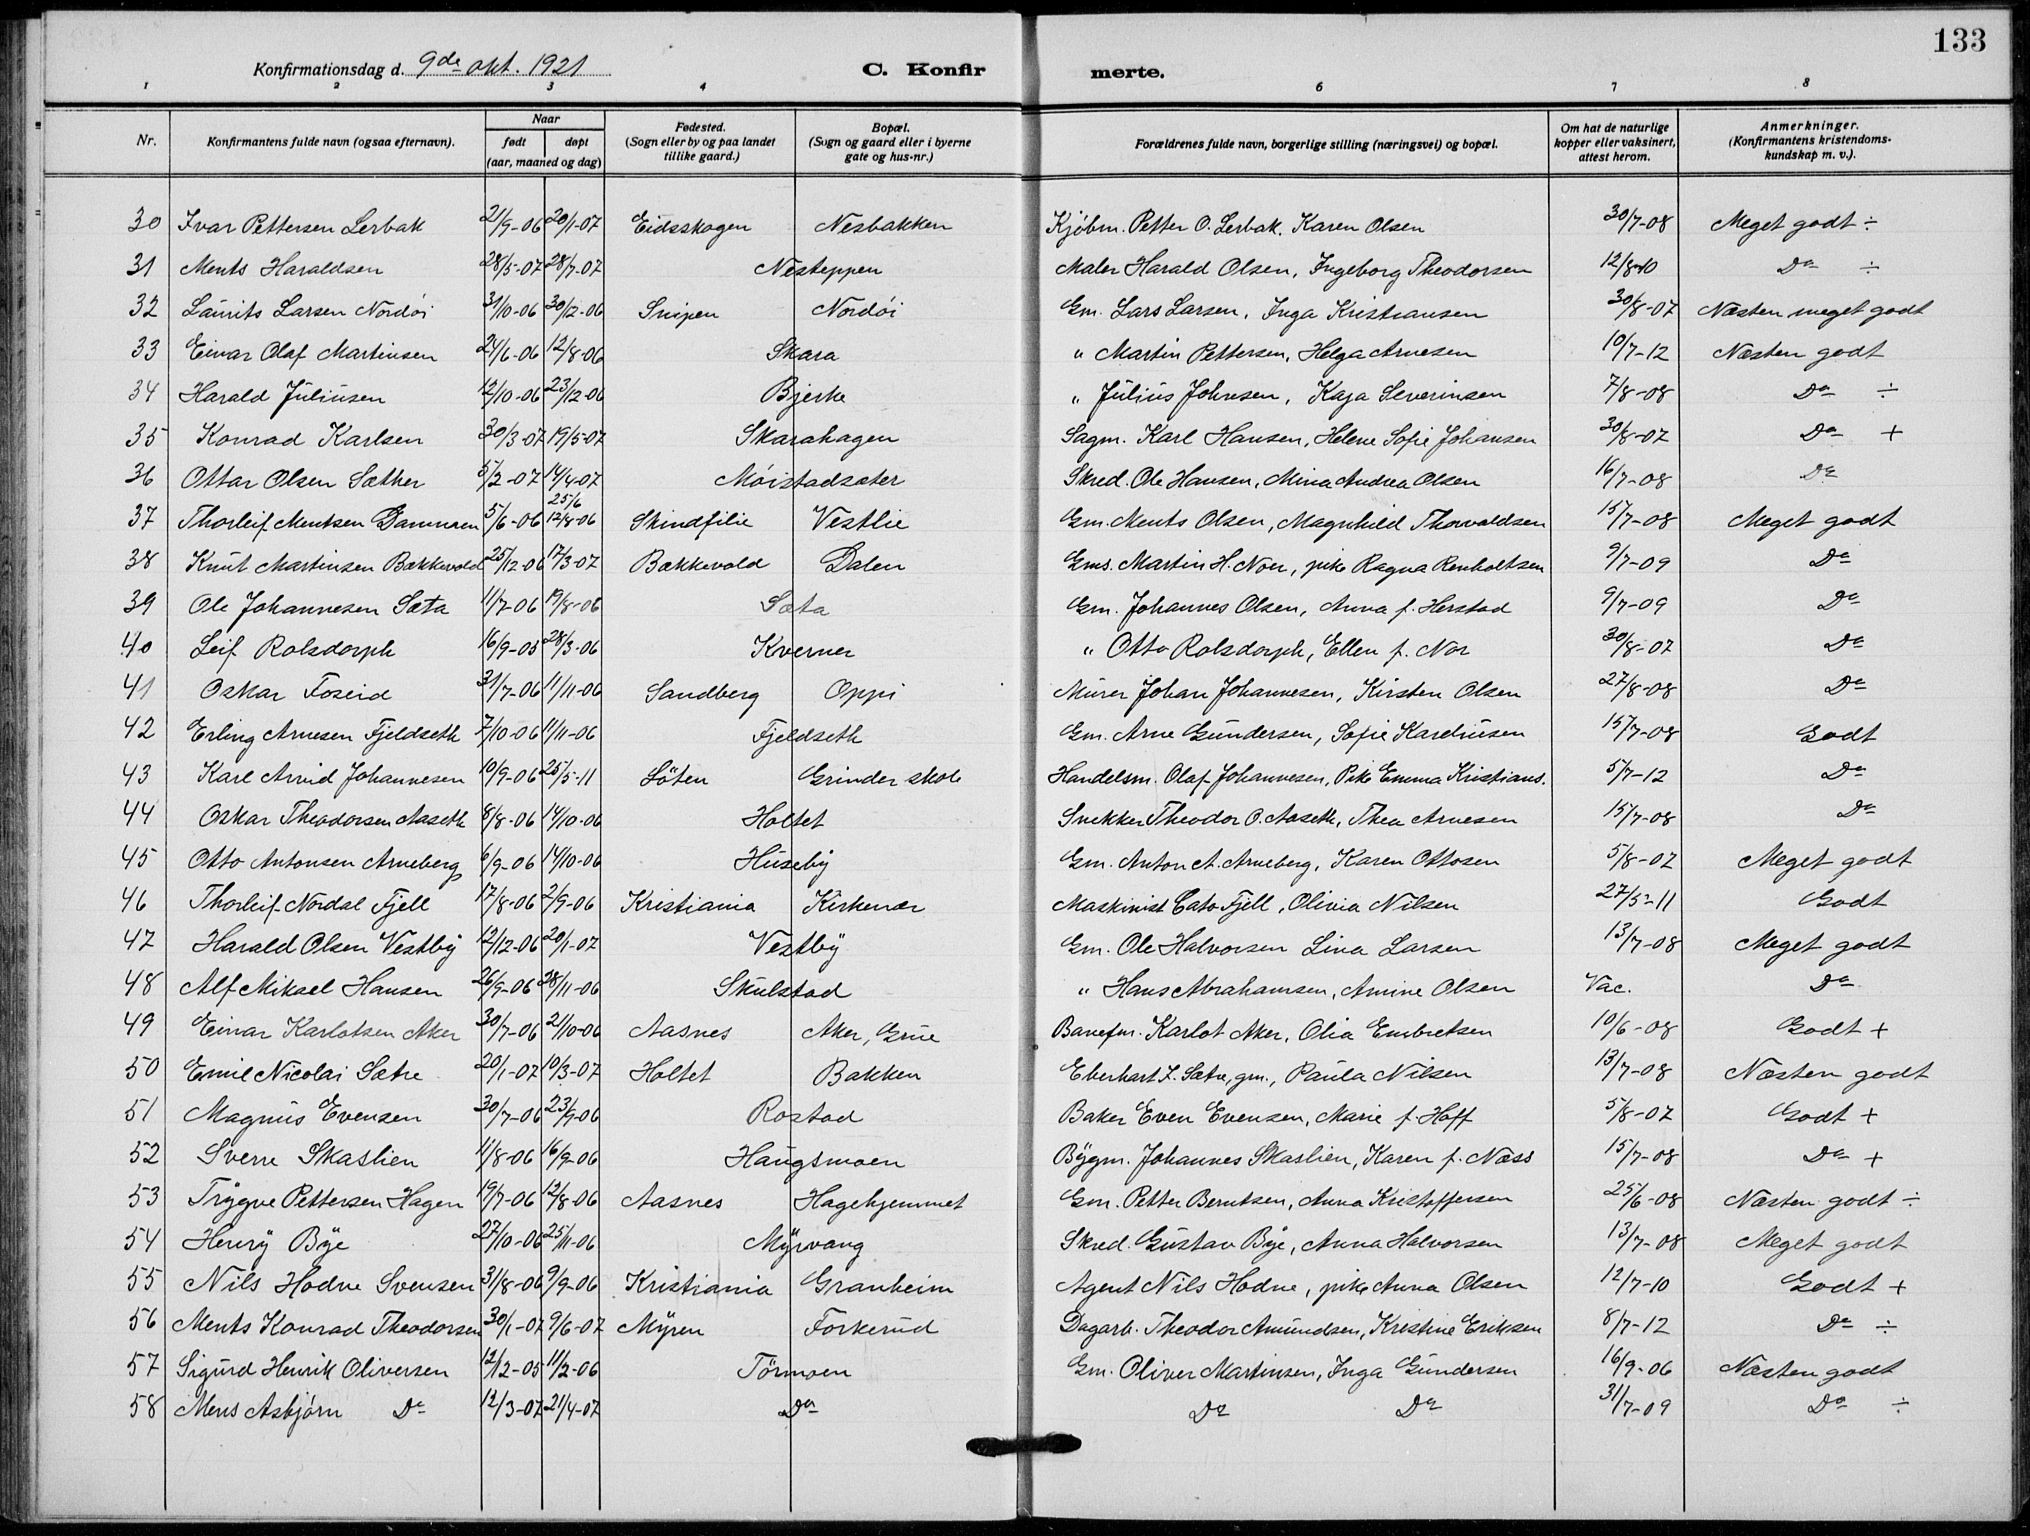 133
Konfirmationsdag d. 9de okt. 1921 C. Konfirmerte.
1 2 3 4 6 7 8
Nr. Konfirmantens fulde navn (ogsaa efternavn). Naar født døpt (aar, maaned og dag) Fødested. (Sogn eller by og paa landet tillike gaard.) Bopæl. (Sogn og gaard eller i byerne gate og hus-nr.) Forældrenes fulde navn, borgerlige stilling (næringsvei) og bopæl. Om hat de naturlige kopper eller vaksinert, attest herom. Anmerkninger. (Konfirmantens kristendomskundskap m. v.).
30 Ivar Pettersen Lerbak 21/9-06 20/1-07 Eidsskogen Nesbakken Kjøbm. Petter O. Lerbak. Karen Olsen 30/7-08 Meget godt ÷
31 Ments Haraldsen 28/5-07 28/7-07 Nesteppen Maler Harald Olsen, Ingeborg Theodorsen 12/8-10 Do ÷
32 Laurits Larsen Nordøi 31/10-06 30/12-06 Snipen Nordøi Gm. Lars Larsen, Inga Kristiansen 30/8-07 Næsten meget godt
33 Einar Olaf Martinsen 24/6-06 12/8-06 Skara " Martin Pettersen, Helga Arnesen 10/7-12 Næsten godt
34 Harald Juliusen 12/10-06 23/12-06 Bjerke " Julius Johnesen, Kaja Severinsen 7/8-08 Do ÷
35 Konrad Karlsen 30/3-07 19/5-07 Skarahagen Sagm. Karl Hansen, Helene Sofie Johansen 30/8-07 Do +
36 Ottar Olsen Sæther 5/2-07 14/4-07 Møistadsæter Skred. Ole Hansen, Mina Andrea Olsen 16/7-08 Do
37 Thorleif Mentsen Dammen 5/6-06 25/6 12/8-06 Skindfilie Vestlie Gm. Ments Olsen, Magnhild Thorvaldsen 15/7-08 Meget godt
38 Knut Martinsen Bækkevold 25/12-06 17/3-07 Bækkevold Dalen Gms. Martin H. Noer, pike Ragna Renholtsen 9/7-09 Do
39 Ole Johannesen Sæta 11/7-06 19/8-06 Sæta Gm. Johannes Olsen, Anna f. Herstad 9/7-09 Do
40 Leif Rolsdorph 16/9-05 28/3-06 Kverner " Otto Rolsdorph, Ellen f. Nor 30/8-07 Do
41 Oskar Foseid 31/7-06 11/11-06 Sandberg Oppi Murer Johan Johannesen, Kirsten Olsen 27/8-08 Do
42 Erling Arnesen Fjeldseth 7/10-06 11/11-06 Fjeldseth Gm. Arne Gundersen, Sofie Kareliusen 15/7-08 Godt
43 Karl Arvid Johannesen 10/9-06 25/5-11 Løten Grinder skole Handelsm. Olaf Johannesen, Pike Emma Kristians. 5/7-12 Do
44 Oskar Theodorsen Aaseth 8/8-06 14/10-06 Holtet Snekker Theodor O. Aaseth, Thea Arnesen 15/7-08 Do
45 Otto Antonsen Arneberg 6/9-06 14/10-06 Huseby Gm. Anton A. Arneberg, Karen Ottosen 5/8-07 Meget godt
46 Thorleif Nordal Fjell 17/8-06 2/9-06 Kristiania Kirkenær Maskinist Cato Fjell, Olivia Nilsen 27/5-11 Godt
47 Harald Olsen Vestby 12/12-06 20/1-07 Vestby Gm. Ole Halvorsen Lina Larsen 13/7-08 Meget godt
48 Alf Mikael Hansen 26/9-06 28/11-06 Skulstad " Hans Abrahamsen, Amine Olsen Vac. Do
49 Einar Karlotsen Aker 30/7-06 21/10-06 Aasnes Aker, Grue Banefm. Karlot Aker, Olia Embretsen 10/6-08 Godt +
50 Emil Nicolai Sætre 20/1-07 10/3-07 Holtet Bakken Eberhart L. Sætre, gm., Paula Nilsen 13/7-08 Næsten godt
51 Magnus Evensen 30/7-06 23/9-06 Rostad Baker Even Evensen, Marie f. Hoff 5/8-07 Godt +
52 Sverre Skaslien 11/8-06 16/9-06 Haugsmoen Bygm. Johannes Skaslien, Karen f. Næss 15/7-08 Do +
53 Trygve Pettersen Hagen 19/7-06 12/8-06 Aasnes Hagehjemmet Gm. Petter Berntsen, Anna Kristoffersen 25/6-08 Næsten godt ÷
54 Henry Bye 27/10-06 25/11-06 Myrvang Skred. Gustav Bye, Anna Halvorsen 13/7-08 Meget godt
55 Nils Hodne Svensen 31/8-06 9/9-06 Kristiania Granheim Agent Nils Hodne, pike Anna Olsen 12/7-10 Godt +
56 Ments Konrad Theodorsen 30/1-07 9/6-07 Myren Forkerud Dagarb. Theodor Amundsen, Kristine Eriksen 8/7-12 Do ÷
57 Sigurd Henrik Oliversen 12/12-05 11/2-06 Tørmoen Gm. Oliver Martinsen, Inga Gundersen 16/9-06 Næsten godt
58 Mens Asbjørn Do 12/3-07 21/4-07 Do Do Do 31/7-09 Do ÷